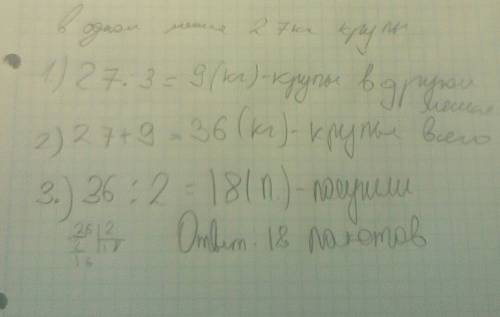 в одном мешке 27кг крупы
1) 27:3=9(кг)-крупы в другом
мешке
2) 27+9=36(кг)-крупы всего
3.) 36:2=18(п.)-получили
36 2
2 18
16
Ответ. 18 пакетов